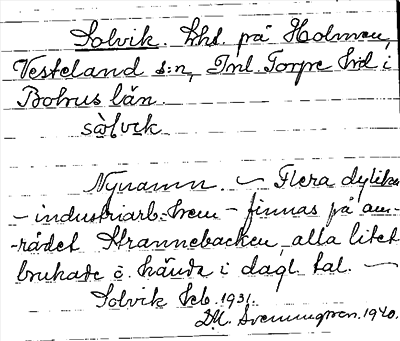 Solvik. Lhs. på Holmen,
Vesteland s:n, Inl. Torpe hrd i
Bohus län.
sòlvik
Nynamn. – Flera dylika
– industriarb.-hem – finnas på om-
-rådet Strannebacken, alla litet
brukade o. kända i dagl. tal. –
Solvik Feb. 1931.
D.M. Svenningson. 1940.